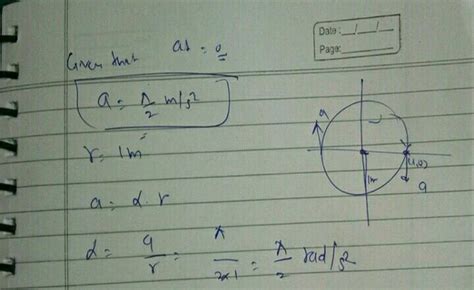 Date: __/__/__
Page:
Given that at = 0
a = π/2 m/s²
r = 1m
a = α . r
α = a/r = π/2×1 = π/2 rad/s²
a
(1,0)
1m
a